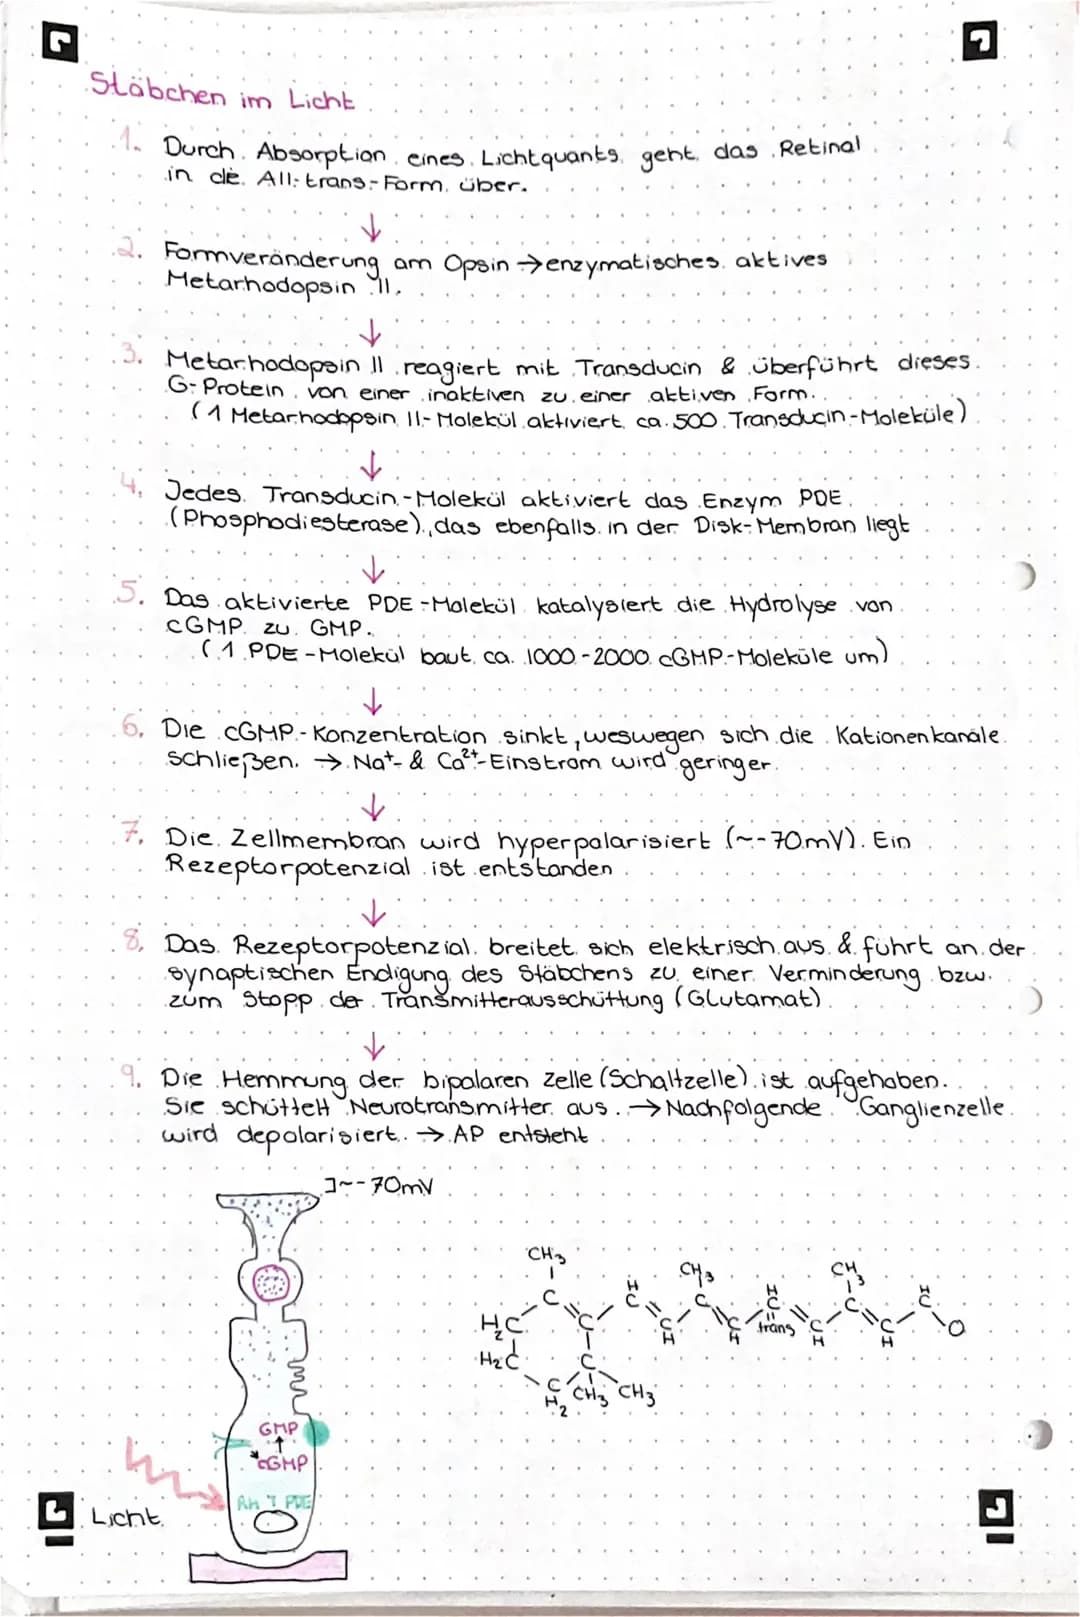 Stäbchen im Licht
1. Durch Absorption eines Lichtquants geht das Retinal
in die All-trans-Form über.
↓
2. Formveränderung am Opsin → enzymatisches aktives
Metarhodopsin II.
↓
3. Metarhodopsin II reagiert mit Transducin & überführt dieses
G-Protein von einer inaktiven zu einer aktiven Form.
(1 Metarhodopsin II-Molekül aktiviert ca. 500 Transducin-Moleküle)
↓
4. Jedes Transducin-Molekül aktiviert das Enzym PDE
(Phosphodiesterase), das ebenfalls in der Disk-Membran liegt
↓
5. Das aktivierte PDE-Molekül katalysiert die Hydrolyse von
cGMP zu GMP.
(1 PDE-Molekül baut ca. 1000-2000 cGMP-Moleküle um)
↓
6. Die cGMP-Konzentration sinkt, weswegen sich die Kationenkanäle
schließen. → Na⁺- & Ca²⁺-Einstrom wird geringer.
↓
7. Die Zellmembran wird hyperpolarisiert (~-70mV). Ein
Rezeptorpotenzial ist entstanden
↓
8. Das Rezeptorpotenzial breitet sich elektrisch aus & führt an der
synaptischen Endigung des Stäbchens zu einer Verminderung bzw.
zum Stopp der Transmitterausschüttung (Glutamat)
↓
9. Die Hemmung der bipolaren Zelle (Schaltzelle) ist aufgehoben.
Sie schüttelt Neurotransmitter aus. → Nachfolgende Ganglienzelle
wird depolarisiert. → AP entsteht
]~-70mV
CH₃
CH₃
CH₃
H
C
C
H
C
C
H
C
C
H
C
H₂C
C
C
H
C
H
trans
C
H
C
H
O
H₂C
C
C
H₂
CH₃
CH₃
GMP
↑
cGMP
RH T PDE
Licht